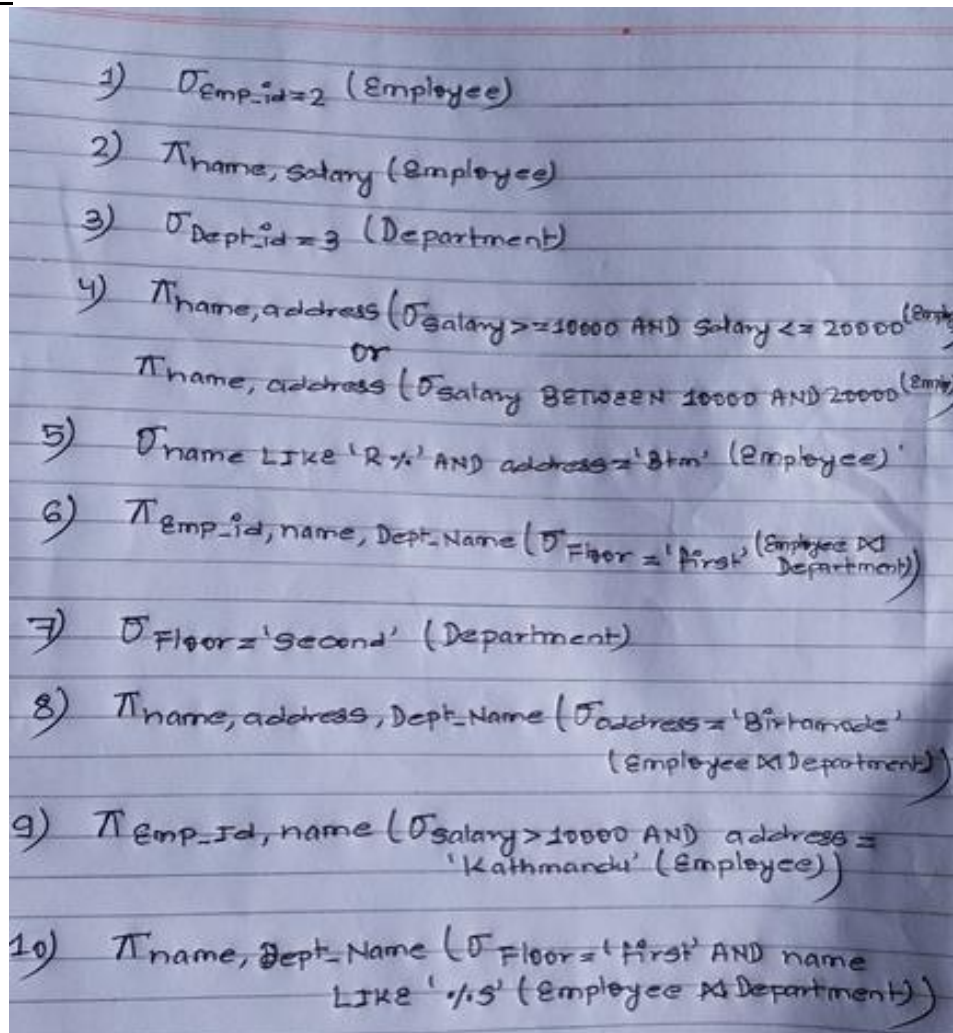 1) σEmp_id=2 (Employee)
2) πname, salary (Employee)
3) σDept_id = 3 (Department)
4) πname, address (σsalary >=10000 AND salary <= 20000 (Employ
or
πname, address (σsalary BETWEEN 10000 AND 20000 (Emplo
5) σname LIKE 'R%' AND address='Btm' (Employee)
6) πEmp_id, name, Dept_Name (σFloor = 'first' (Employee ⋈
Department))
7) σFloor='Second' (Department)
8) πname, address, Dept_Name (σaddress='Birtamode'
(Employee ⋈ Department))
9) πEmp_Id, name (σsalary>10000 AND address =
'Kathmandu' (Employee))
10) πname, Dept_Name (σFloor='first' AND name
LIKE '%s' (Employee ⋈ Department))